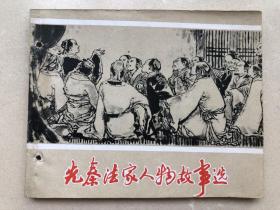 先秦法家人物故事选